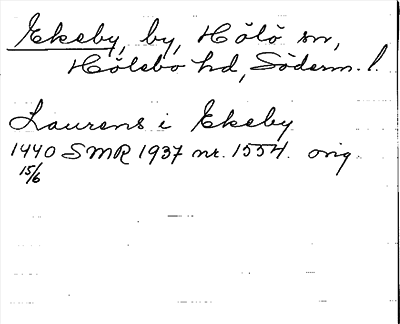 Ekeby, by, Hölö sn,
Hölebo hd, Söderm. l.
Laurens i Ekeby
1440 SMR 1937 nr. 1554. orig.
15/6